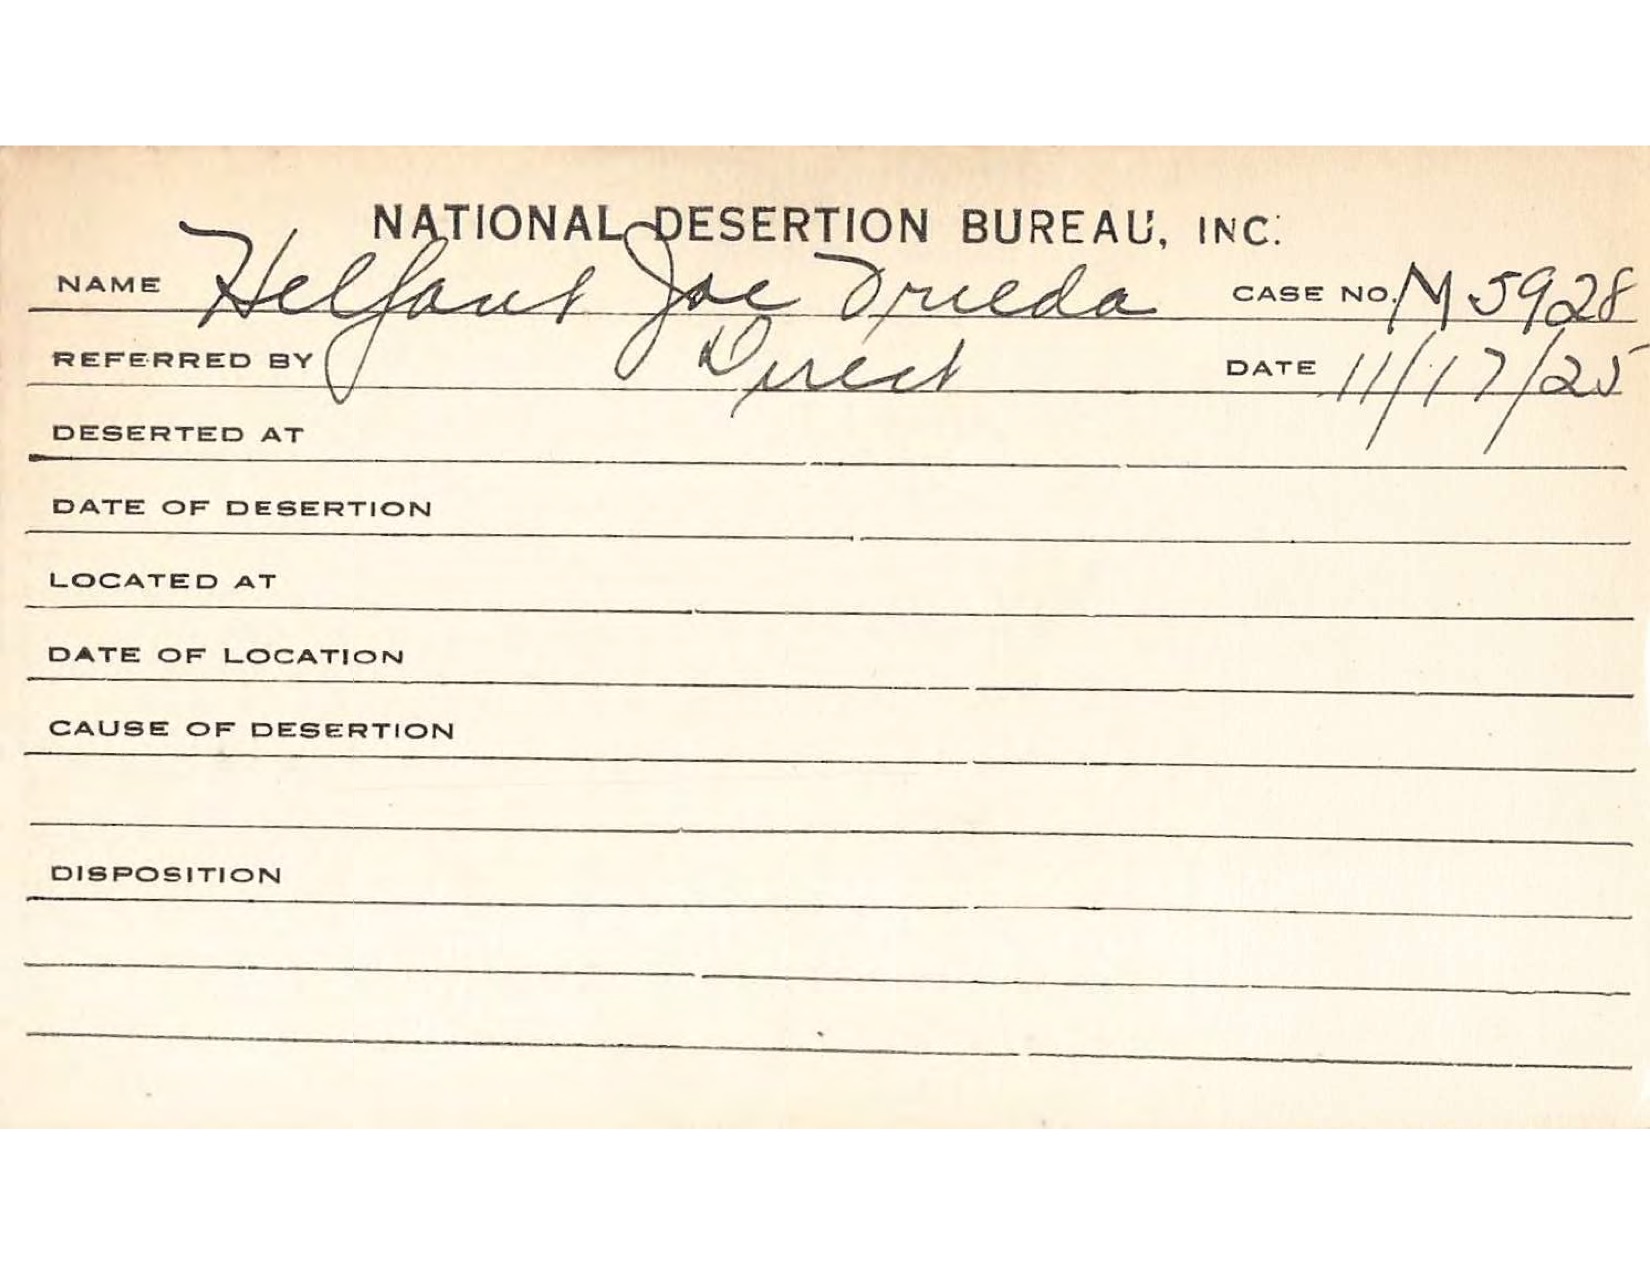 NATIONAL DESERTION BUREAU, INC.
NAME Helfant Joe Frieda CASE NO. M 5928
REFERRED BY Direct DATE 11/17/25
DESERTED AT
DATE OF DESERTION
LOCATED AT
DATE OF LOCATION
CAUSE OF DESERTION
DISPOSITION